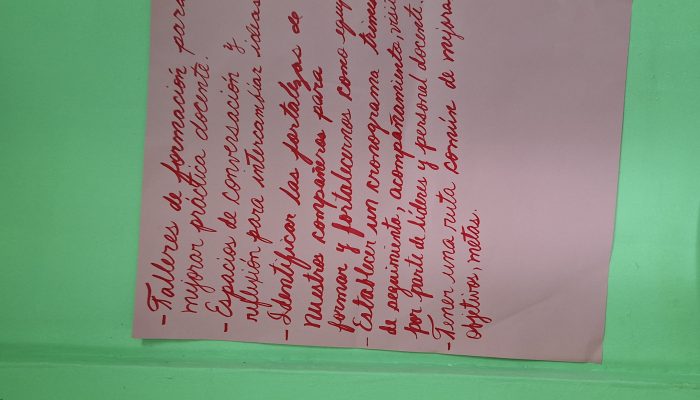 - Talleres de formación para
mejorar práctica docente.
- Espacios de conversación y
reflexión para intercambiar ideas
- Identificar las fortalezas de
nuestros compañeros para
formar y fortalecernos como
- Establecer un cronograma
de seguimiento, acompañamiento,
por parte de líderes y personal docente.
- Tener una ruta común de mejora
objetivos, metas.